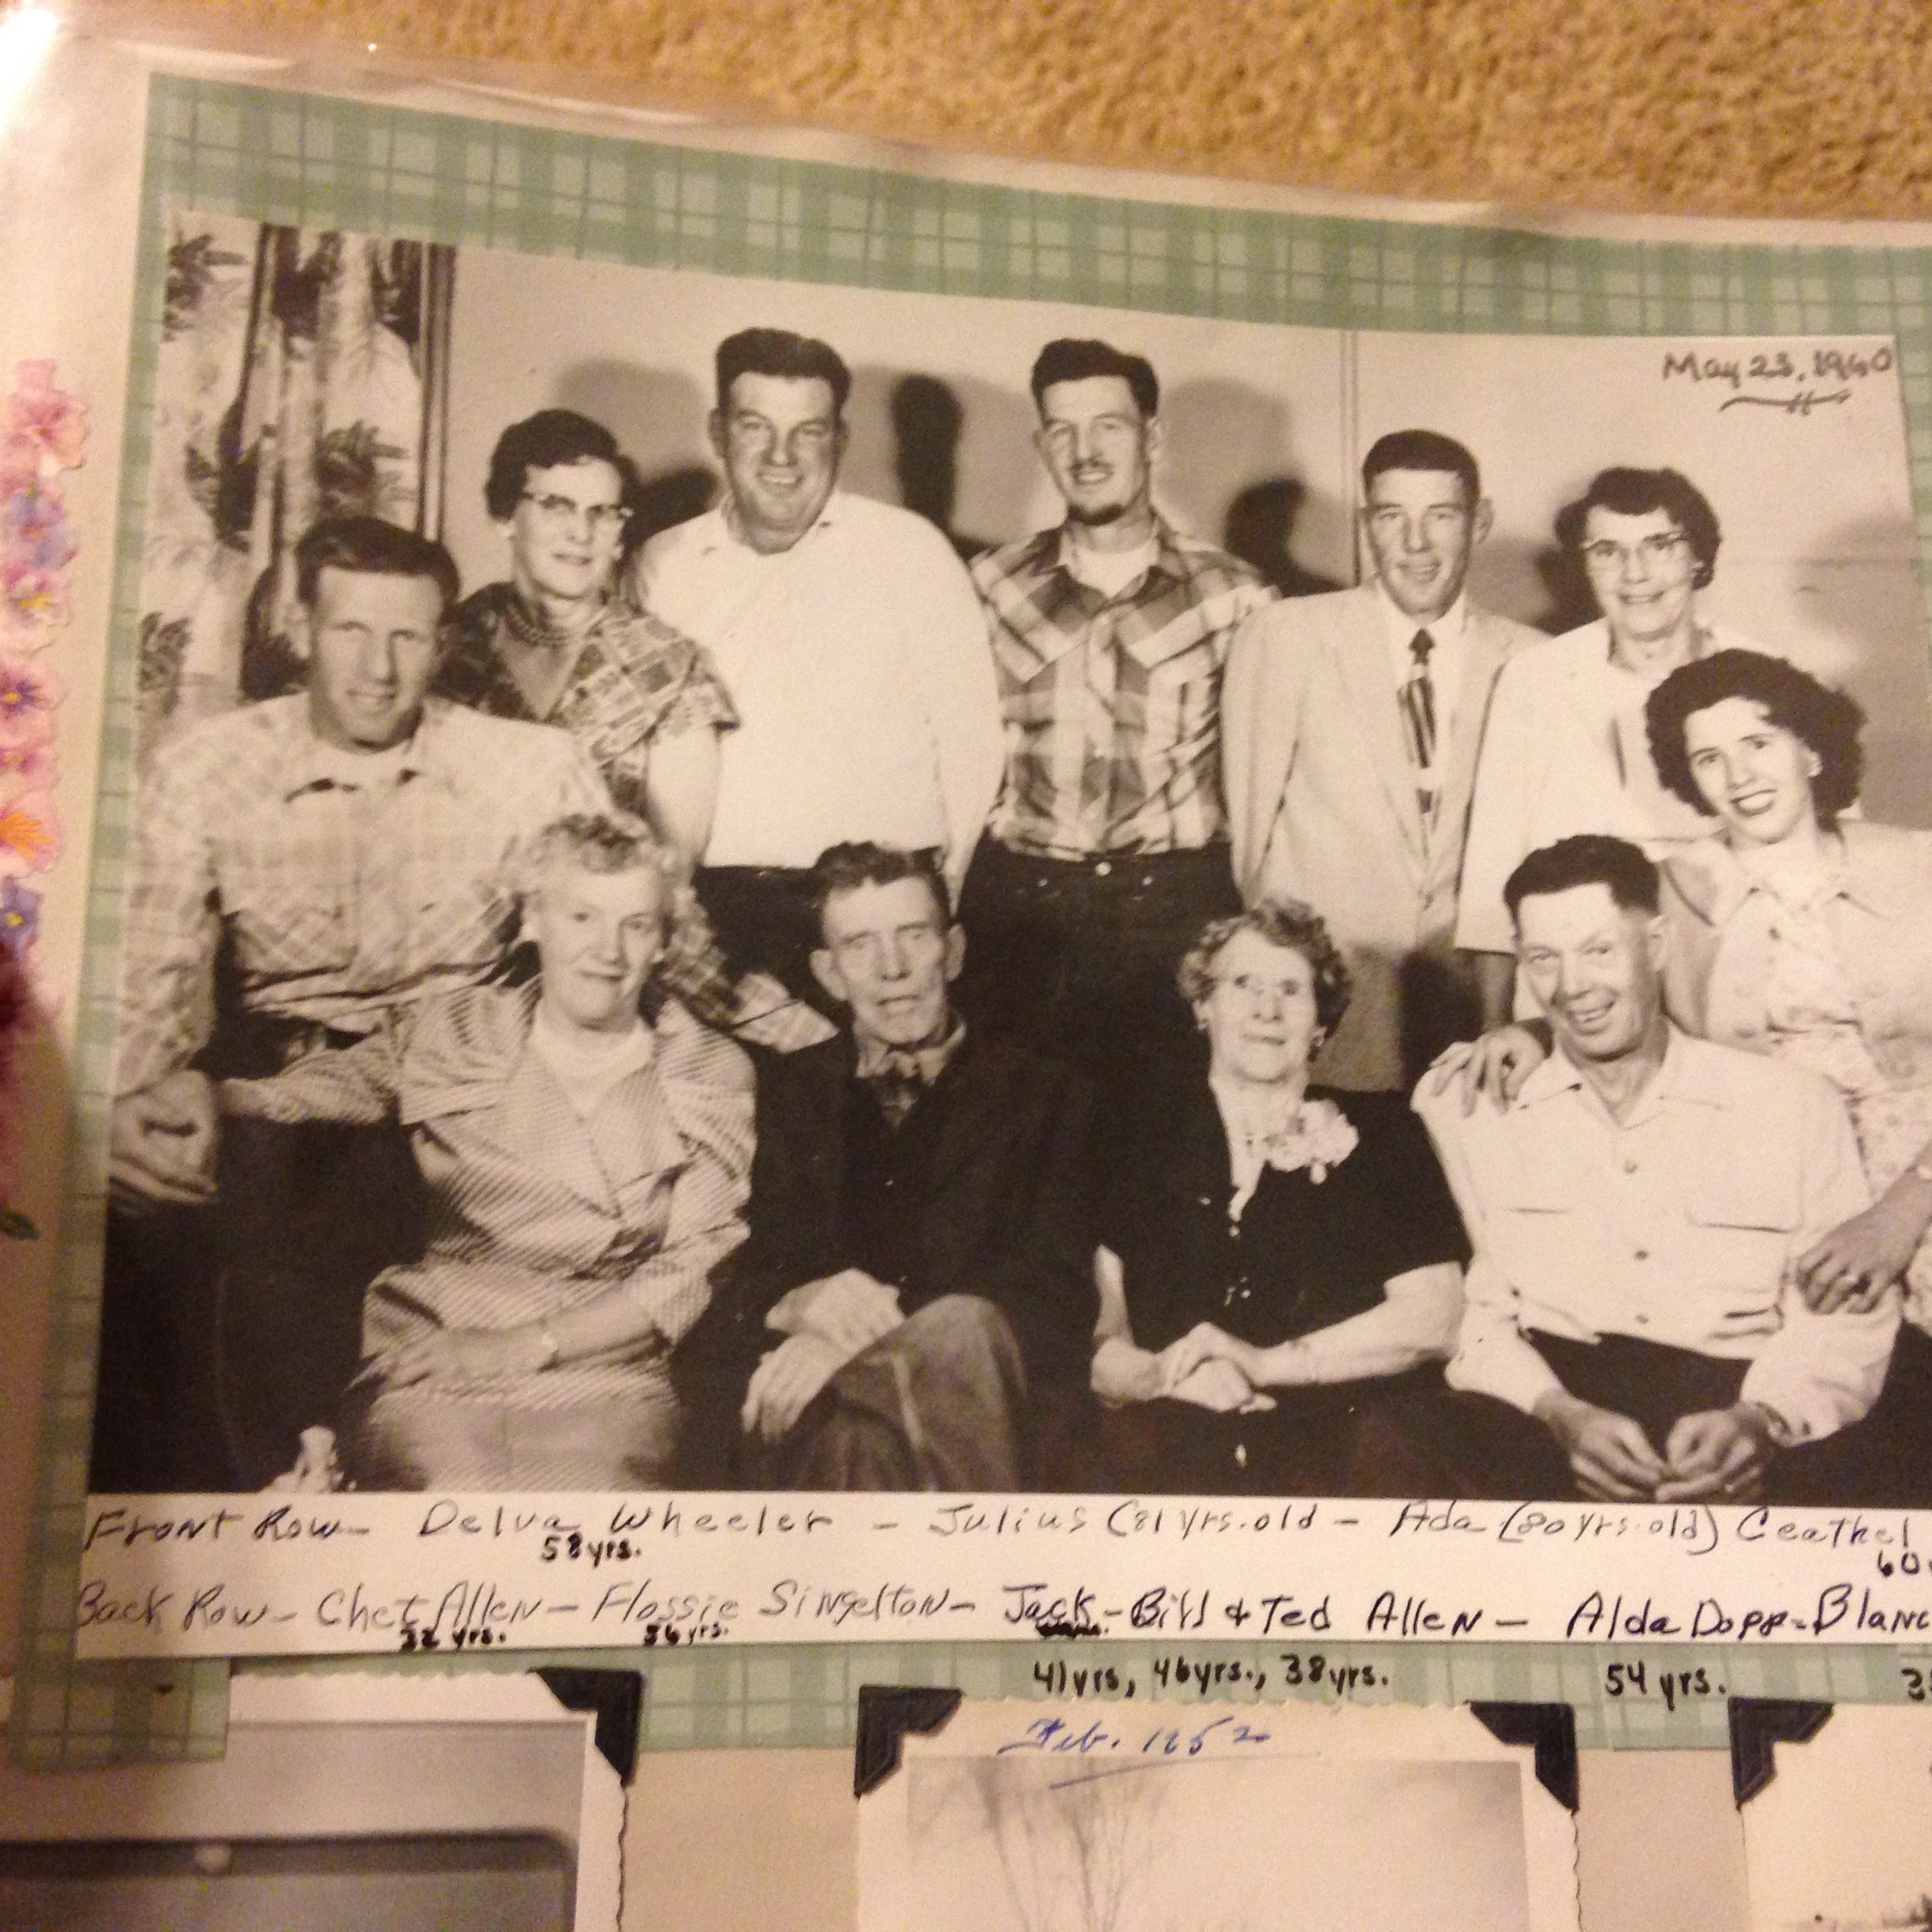 May 23, 1960
Front Row - Delva Wheeler - Julius (81 yrs. old) - Ada (80 yrs. old) Ceathel
58 yrs. 60
Back Row - Chet Allen - Flossie Singelton - Jack - Bill & Ted Allen - Alda Dopp - Blanc
32 yrs. 56 yrs. 41 yrs, 46 yrs., 38 yrs. 54 yrs. 3
Feb. 1952